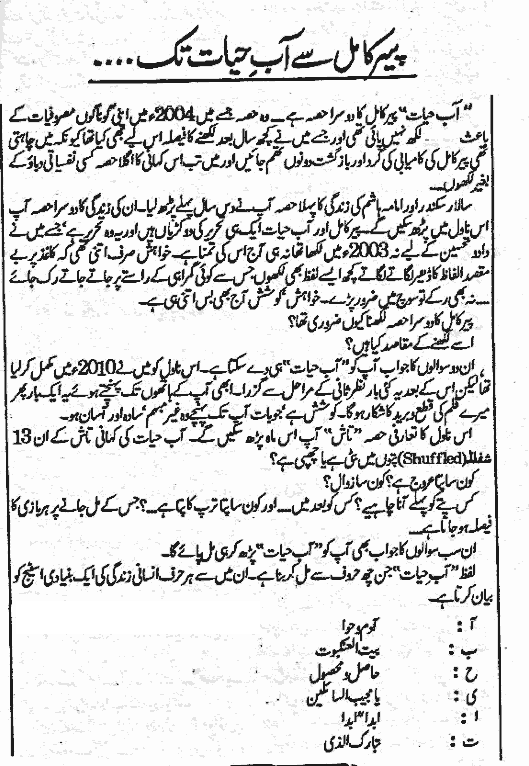 پیر کامل سے آبِ حیات تک ....
”آب حیات“ پیر کامل کا دوسرا حصہ ہے۔ وہ حصہ جسے میں 2004ء میں اپنی گوناگوں مصروفیات کے
باعث لکھ نہیں پائی تھی اور جسے میں نے کچھ سال بعد لکھنے کا فیصلہ اس لیے بھی کیا تھا کیونکہ میں چاہتی
تھی پیر کامل کی کامیابی کی گرد اور بازگشت دونوں تھم جائیں اور میں تب اس کہانی کا اگلا حصہ کسی نفسیاتی دباؤ کے
بغیر لکھوں۔
سالار سکندر اور امامہ ہاشم کی زندگی کا پہلا حصہ آپ نے دس سال پہلے پڑھ لیا۔ ان کی زندگی کا دوسرا حصہ آپ
اس ناول میں پڑھ سکیں گے۔ پیر کامل اور آب حیات ایک ہی تحریر کی دو کڑیاں ہیں اور یہ وہ تحریر ہے، جسے میں نے
داد و تحسین کے لیے نہ 2003ء میں لکھا تھا نہ ہی آج اس کی تمنا ہے۔ خواہش صرف اتنی تھی کہ کاغذ پر بے
مقصد الفاظ کا ڈھیر لگاتے لگاتے کچھ ایسے لفظ بھی لکھوں جس سے کوئی گمراہی کے راستے پر جاتے جاتے رک جائے
.... نہ بھی رکے تو سوچ میں ضرور پڑے۔ خواہش، کوشش آج بھی بس اتنی ہی ہے۔
پیر کامل کا دوسرا حصہ لکھنا کیوں ضروری تھا؟
اسے لکھنے کے مقاصد کیا ہیں؟
ان دو سوالوں کا جواب آپ کو ”آب حیات“ ہی دے سکتا ہے۔ اس ناول کو میں نے 2010ء میں مکمل کر لیا
تھا لیکن اس کے بعد یہ کئی بار نظر ثانی کے مراحل سے گزرا۔ ابھی آپ کے ہاتھوں تک پہنچتے ہوئے یہ ایک بار پھر
میرے قلم کی قطع و برید کا شکار ہو گا۔ کوشش ہے، جو بات آپ تک پہنچے وہ غیر مبہم، سادہ اور آسان ہو۔
اس ناول کا تعارفی حصہ ”تاش“ آپ اس ماہ پڑھ سکیں گے۔ آب حیات کی کہانی تاش کے ان 13
شفلڈ (Shuffled) پتوں میں بٹی ہے یا چھپی ہے؟
کون سا پتا عروج ہے؟ کون سا زوال؟
کس پتے کو پہلے آنا چاہیے؟ کس کو بعد میں .... اور کون سا پتا ترپ کا پتا ہے....؟ جس کے مل جانے پر ہر بازی کا
فیصلہ ہو جاتا ہے۔
ان سب سوالوں کا جواب بھی آپ کو ”آب حیات“ پڑھ کر ہی مل پائے گا۔
لفظ ”آب حیات“ جن چھ حروف سے مل کر بنا ہے۔ ان میں سے ہر حرف انسانی زندگی کی ایک بنیادی اسٹیج کو
بیان کرتا ہے۔
آ : آدم و حوا
ب : بیت العنکبوت
ح : حاصل و محصول
ی : یا مجیب السائلین
ا : ابدا" ابدا
ت : تبارک الذی